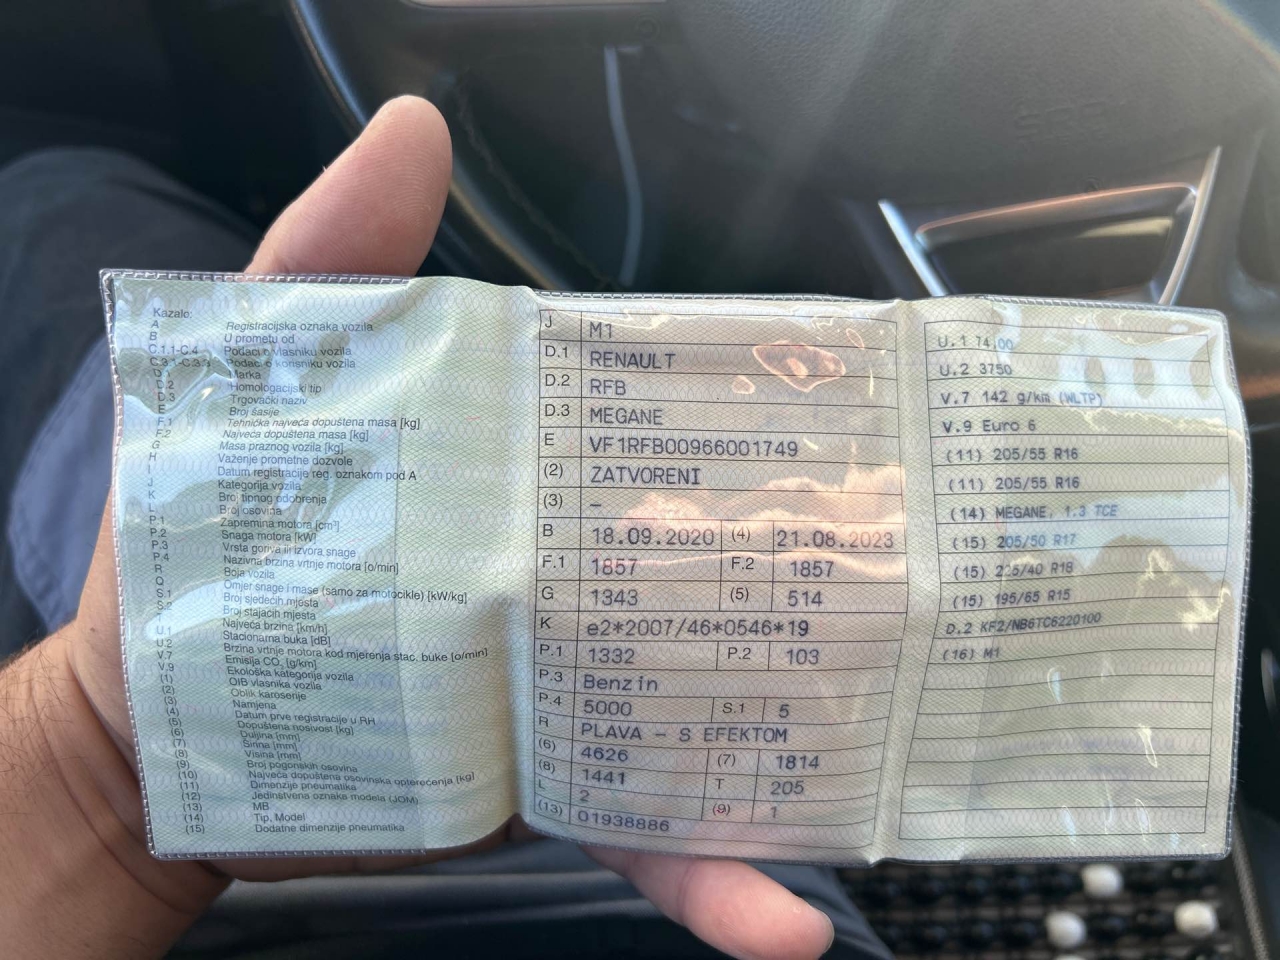 Kazalo:
A Registracijska oznaka vozila
B U prometu od
C.1.1-C.4 Podaci o vlasniku vozila
C.3.1-C.3.3 Podaci o korisniku vozila
D.1 Marka
D.2 Homologacijski tip
D.3 Trgovački naziv
E Broj šasije
F.1 Tehnička najveća dopuštena masa [kg]
F.2 Najveća dopuštena masa [kg]
G Masa praznog vozila [kg]
H Važenje prometne dozvole
I Datum registracije reg. oznakom pod A
J Kategorija vozila
K Broj tipnog odobrenja
L Broj osovina
P.1 Zapremina motora [cm³]
P.2 Snaga motora [kW]
P.3 Vrsta goriva ili izvora snage
P.4 Nazivna brzina vrtnje motora [o/min]
R Boja vozila
Q Omjer snage i mase (samo za motocikle) [kW/kg]
S.1 Broj sjedećih mjesta
S.2 Broj stajaćih mjesta
T Najveća brzina [km/h]
U.1 Stacionarna buka [dB]
U.2 Brzina vrtnje motora kod mjerenja stac. buke [o/min]
V.7 Emisija CO₂ [g/km]
V.9 Ekološka kategorija vozila
(1) OIB vlasnika vozila
(2) Oblik karoserije
(3) Namjena
(4) Datum prve registracije u RH
(5) Dopuštena nosivost [kg]
(6) Duljina [mm]
(7) Širina [mm]
(8) Visina [mm]
(9) Broj pogonskih osovina
(10) Najveća dopuštena osovinska opterećenja [kg]
(11) Dimenzije pneumatika
(12) Jedinstvena oznaka modela (JOM)
(13) MB
(14) Tip, Model
(15) Dodatne dimenzije pneumatika
J M1
D.1 RENAULT
D.2 RFB
D.3 MEGANE
E VF1RFB00966001749
(2) ZATVORENI
(3) –
B 18.09.2020 (4) 21.08.2023
F.1 1857 F.2 1857
G 1343 (5) 514
K e2*2007/46*0546*19
P.1 1332 P.2 103
P.3 Benzin
P.4 5000 S.1 5
R PLAVA – S EFEKTOM
(6) 4626 (7) 1814
(8) 1441 T 205
L 2 (9) 1
(13) 01938886
U.1 74,00
U.2 3750
V.7 142 g/km (WLTP)
V.9 Euro 6
(11) 205/55 R16
(11) 205/55 R16
(14) MEGANE, 1.3 TCE
(15) 205/50 R17
(15) 225/40 R18
(15) 195/65 R15
D.2 KF2/NB6TC6220100
(16) M1